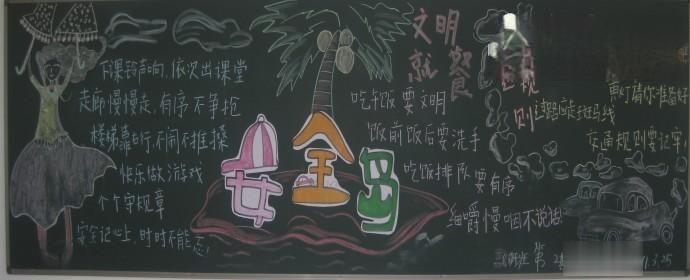 下课铃声响,依次出课堂
走廊慢慢走,有序不争抢
楼梯靠右行,不闹不推搡
快乐做游戏
个个守规章
安全记心上,时时不能忘
安全岛
文明
就餐
吃午饭要文明
饭前饭后要洗手
吃饭排队要有序
细嚼慢咽不说话
规
则
过马路应走斑马线
黄灯请你准备好
交通规则要记牢
班 第2
3.25